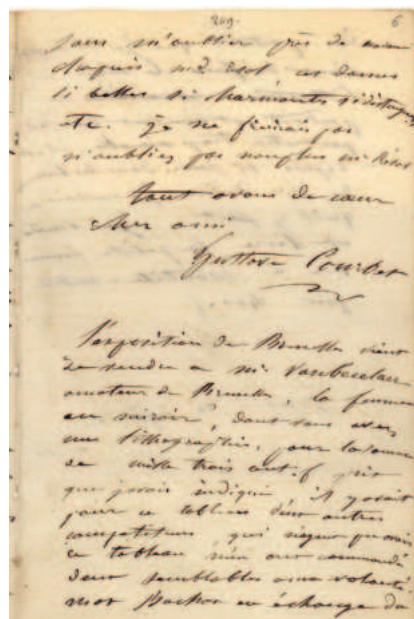 209. 6
sans m'oublier près de
chapuis md Risol, ces dames
si belles si charmantes si distinguées
etc. je ne finirais pas
n'oubliez pas non plus mr Risol
tout avous de cœur
cher ami
Gustave Courbet
l'exposition de Bruxelles vient
de vendre a mr
amateur de Bruxelles, la femme
au miroir, dont vous avez
une lithographie, pour la somme
de mille trois cent f prix
que javais indiqué il y avait
pour ce tableau deux autres
competiteurs, qui
ce tableau m'en ont commandé
deux semblables a ma volonté.
en échange du